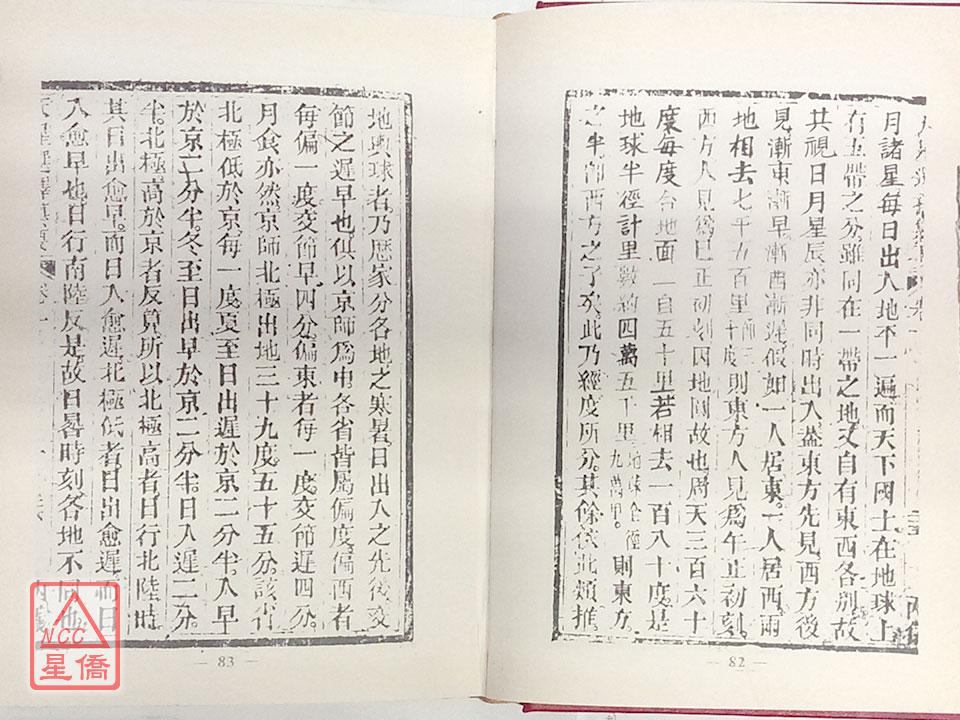 月諸星每日出入地不一遍而天下國土在地球上
有五帶之分雖同在一帶之地又自有東西各別故
共視日月星辰亦非同時出入葢東方先見西方後
見漸東漸早漸西漸遲假如一人居東一人居西兩
地相去七千五百里十度則東方人見爲午正初刻
西方人見爲巳正初刻因地圓故也周天三百六十
度每度合地面二百五十里若相去一百八十度是
地球半徑計里數約四萬五千里地球全徑九萬里則東方
之午卽西方之子矣此乃經度所分其餘依此類推
82
地球者乃歴家分各地之寒暑日出入之先後交
節之遲早也俱以京師爲中各省皆屬偏度偏西者
每偏一度交節早四分偏東者每一度交節遲四分
月食亦然京師北極出地三十九度五十五分該省
北極低於京每一度夏至日出遲於京二分半入早
於京二分半冬至日出早於京二分半日入遲二分
半北極高於京者反算所以北極高者日行北陸時
其日出愈早而日入愈遲北極低者日出愈遲而日
入愈早也日行南陸反是故日晷時刻各地不同也
83
NCC
星僑